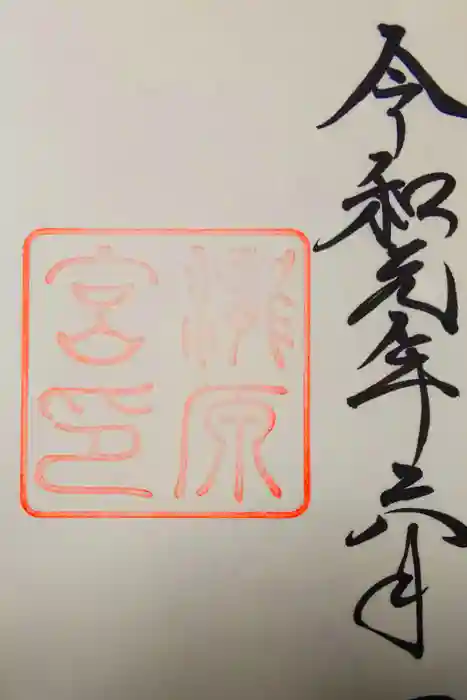 令和元年六月
原
宮印